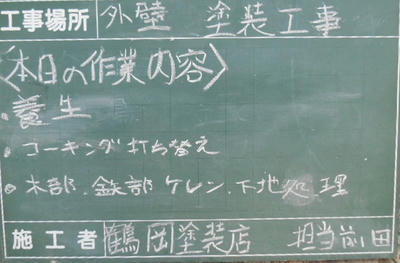 工事場所 外壁 塗装工事
〈本日の作業内容〉
・養生
・コーキング打ち替え
・木部、鉄部ケレン、下地処理
施工者 鶴岡塗装店 担当前田